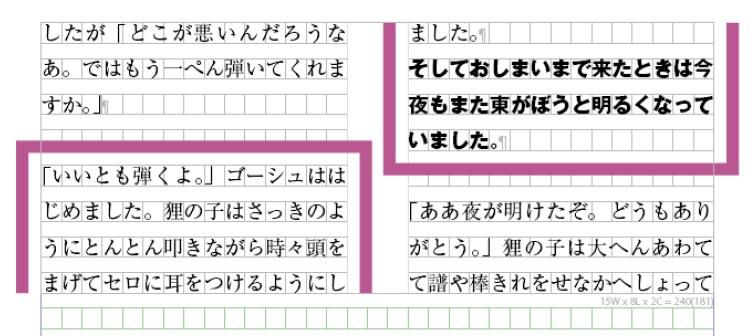 したが「どこが悪いんだろうな
あ。ではもう一ぺん弾いてくれま
すか。」
「いいとも弾くよ。」ゴーシュはは
じめました。狸の子はさっきのよ
うにとんとん叩きながら時々頭を
まげてセロに耳をつけるようにし
ました。
そしておしまいまで来たときは今
夜もまた東がぼうと明るくなって
いました。
「ああ夜が明けたぞ。どうもあり
がとう。」狸の子は大へんあわて
て譜や棒きれをせなかへしょって
15W x 8L x 2C = 240(181)